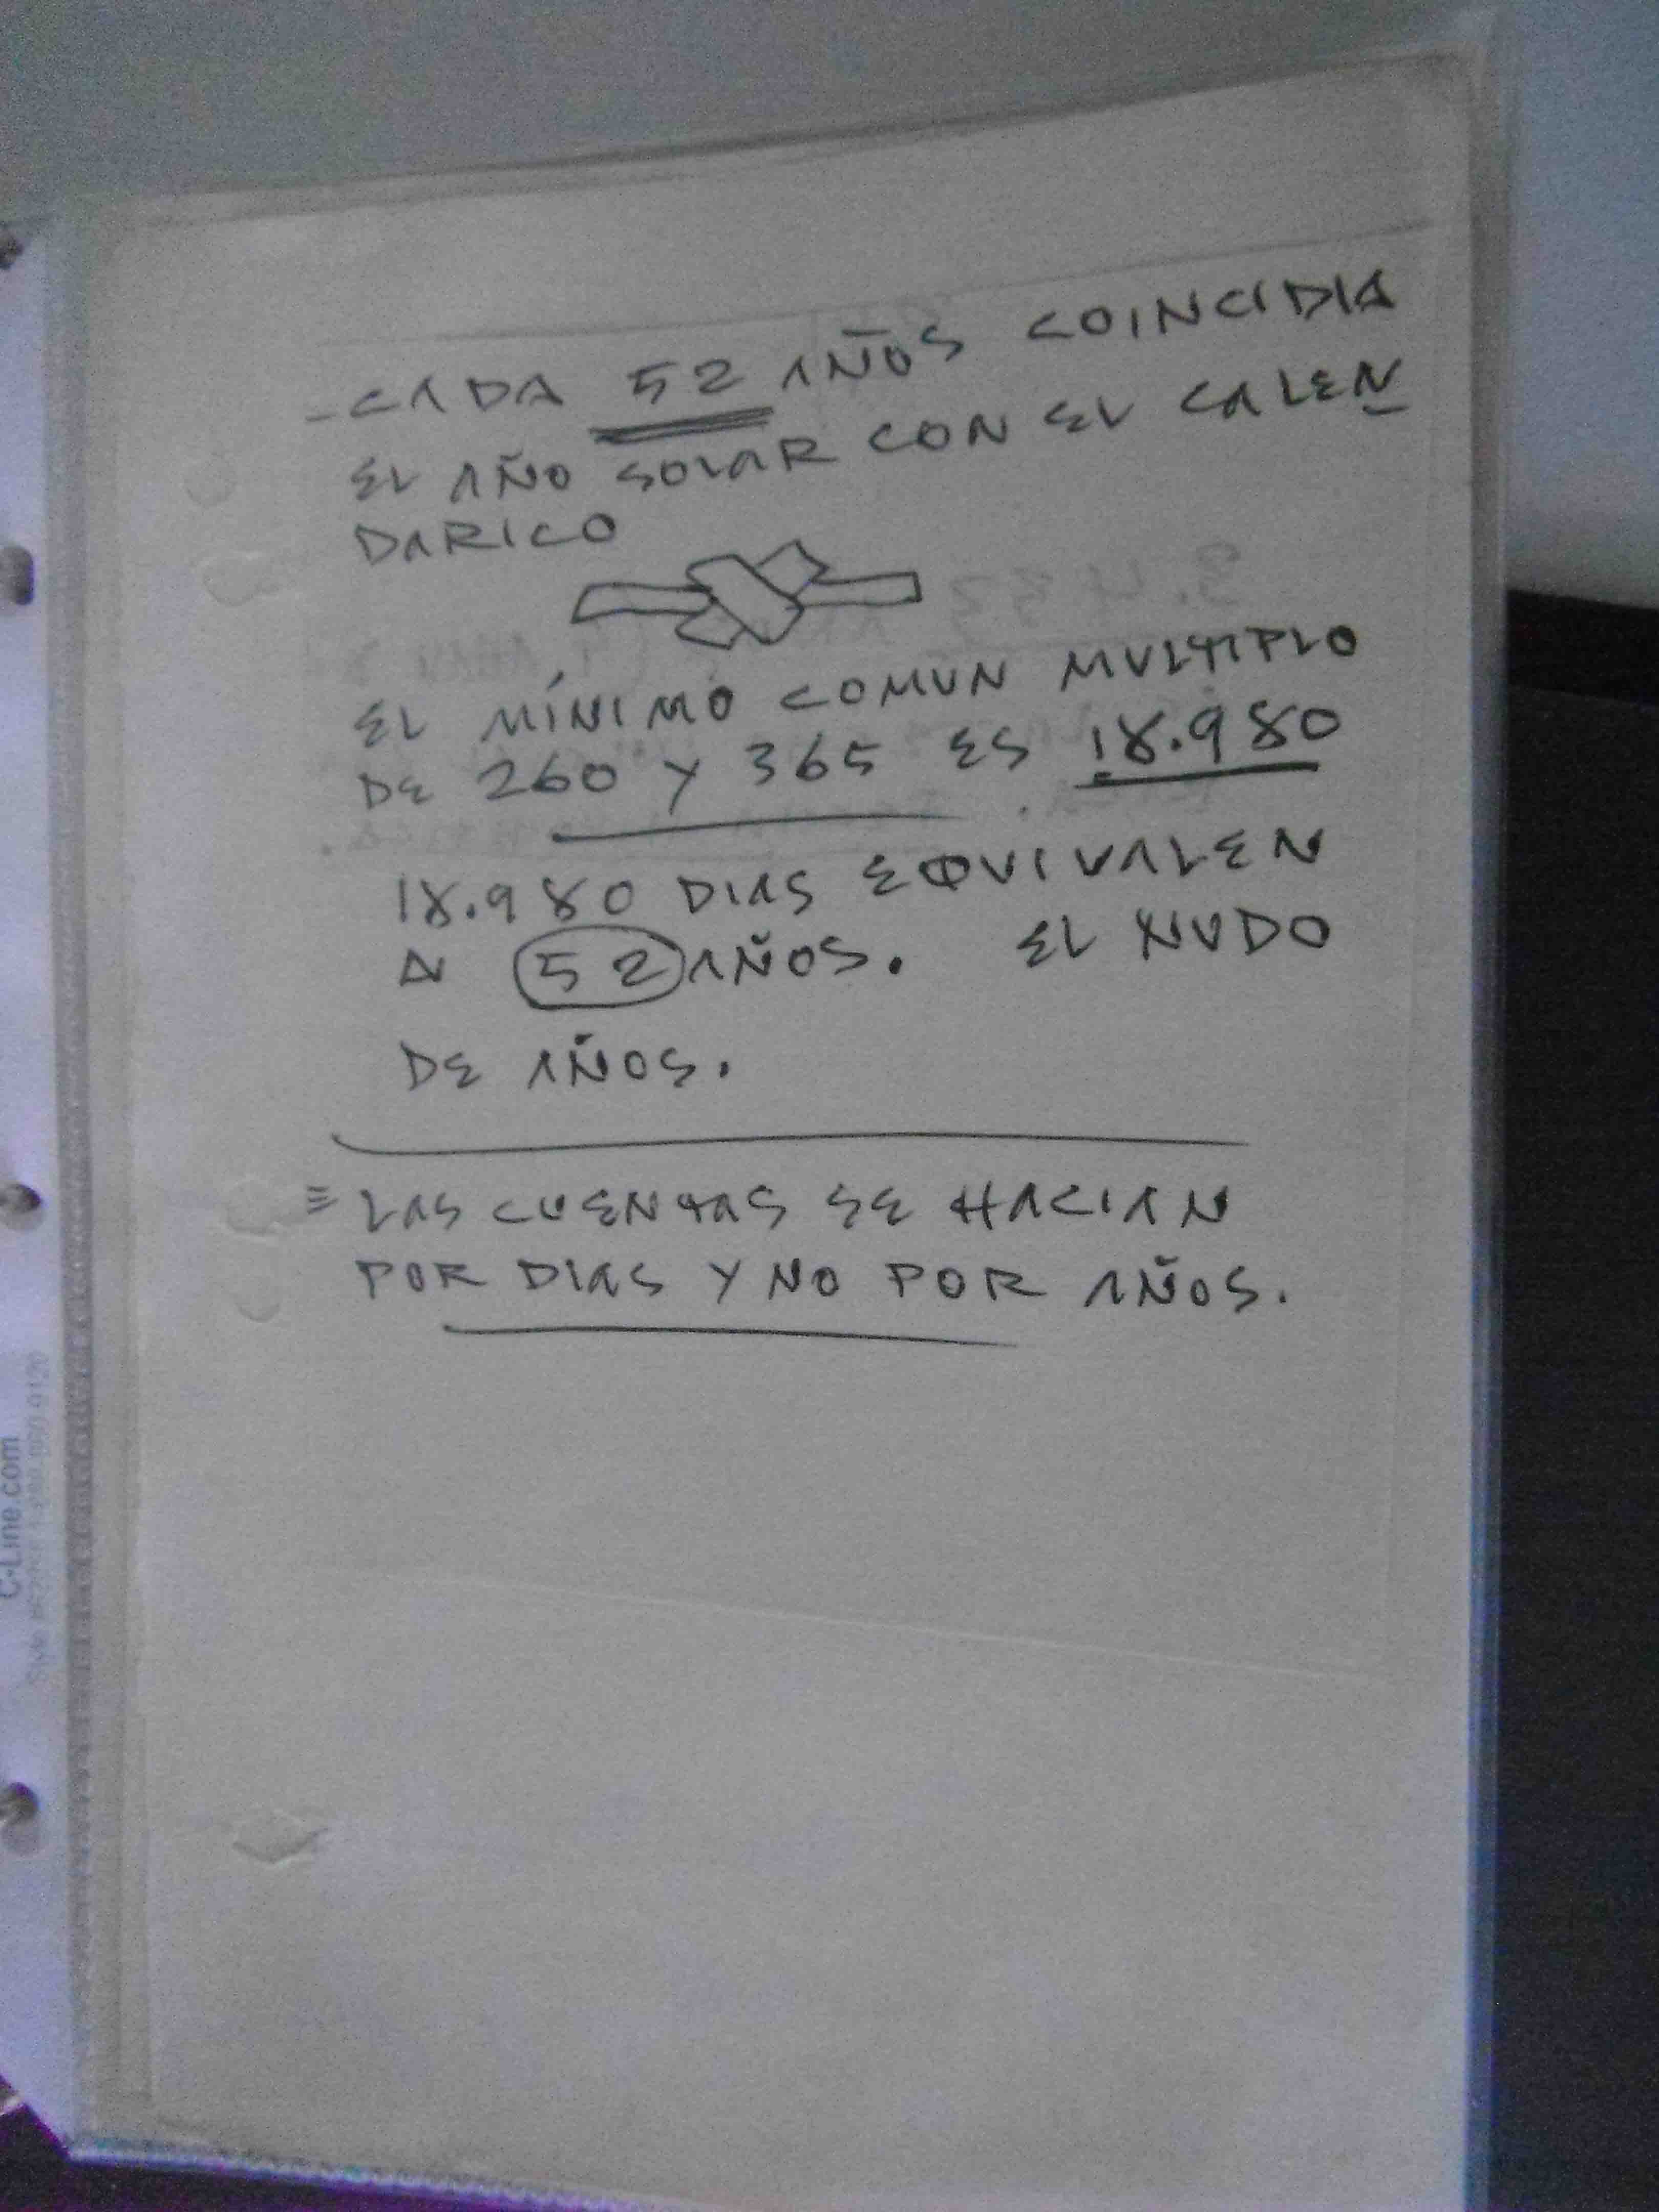 - CADA 52 AÑOS COINCIDIA
EL AÑO SOLAR CON EL CALEN
DARICO
EL MÍNIMO COMUN MULTIPLO
DE 260 Y 365 ES 18.980
18.980 DIAS EQUIVALEN
A 52 AÑOS. EL NUDO
DE AÑOS.
= LAS CUENTAS SE HACIAN
POR DIAS Y NO POR AÑOS.
C-Line.com